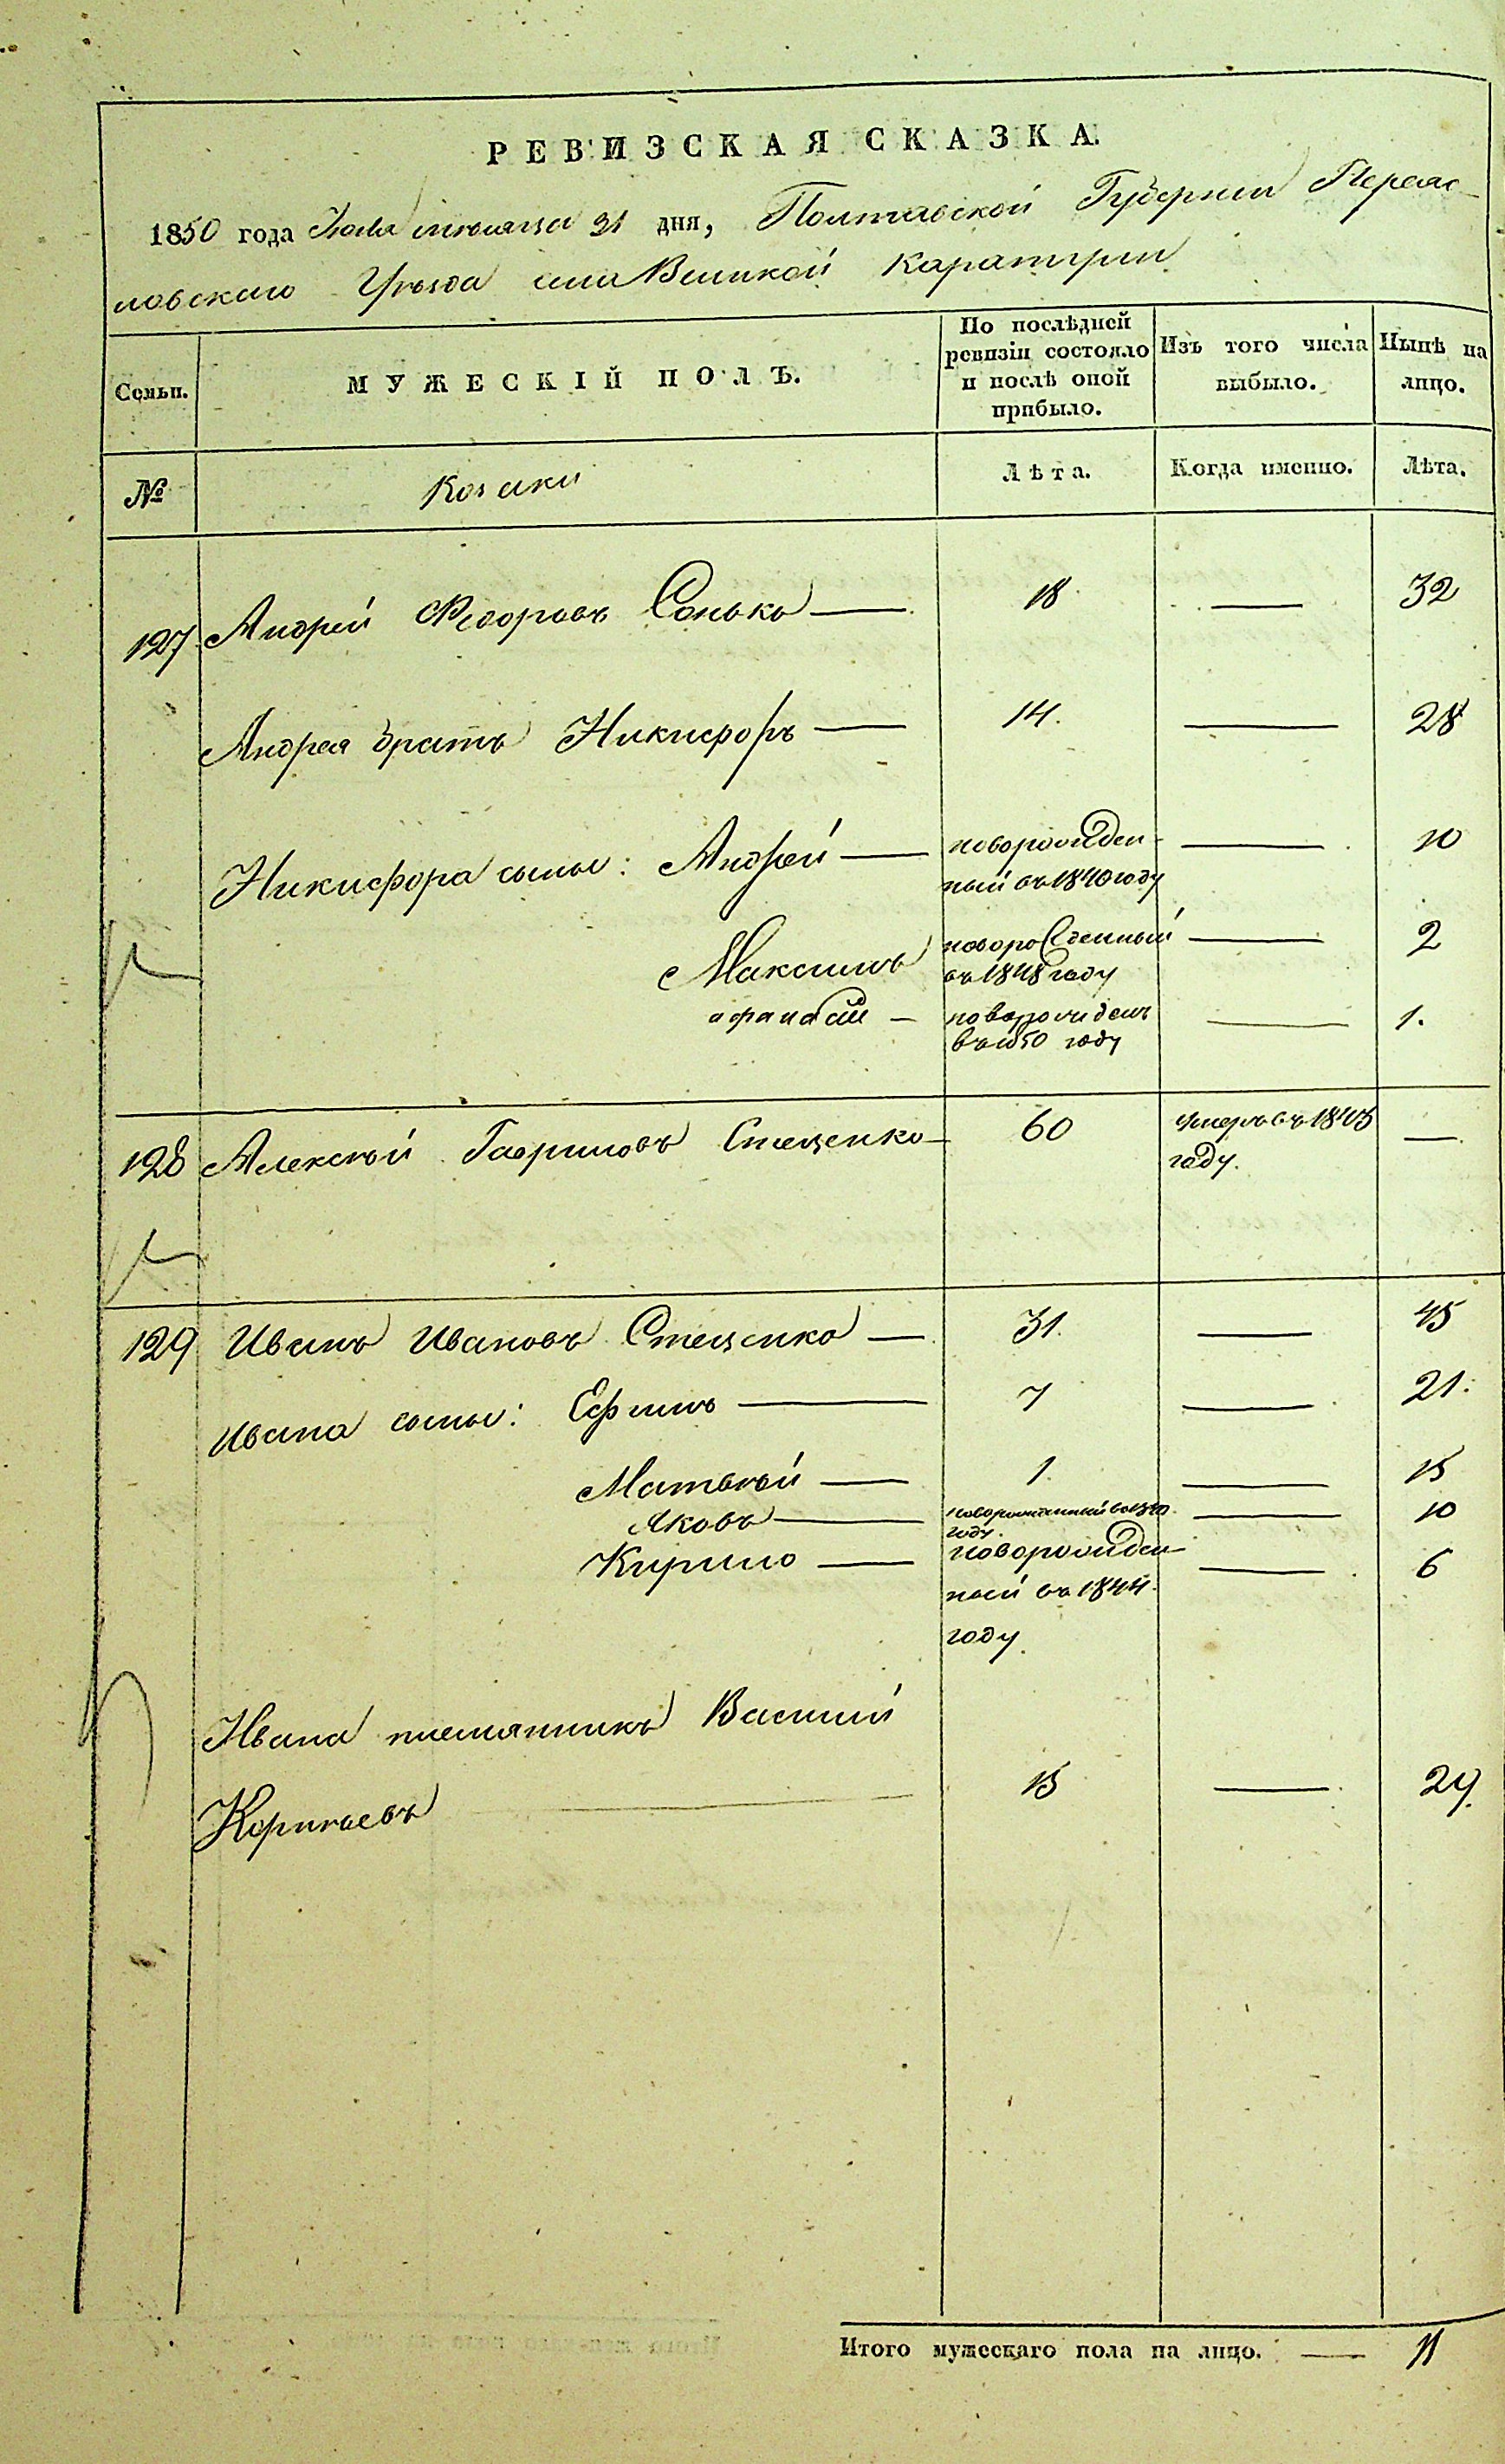 РЕВИЗСКАЯ СКАЗКА.
1850 года мѣсяца 31 дня, Полтавской Губерніи Переяс-
лавскаго Уѣзда села Великой Каратули
Семьи.
МУЖЕСКІЙ ПОЛЪ.
По послѣдней
ревизіи состояло
и послѣ оной
прибыло.
Изъ того числа
выбыло.
Нынѣ на
лицо.
№
Козаки
Лѣта.
Когда именно.
Лѣта.
127 Андрей Федоровъ Сонько — 18 — 32
Андрея братъ Никифоръ — 14. — 28
Никифора сыны: Андрей — новорожден- — 10
ный въ 1840 году
Максимъ новорожденный — 2
въ 1848 году
Афанасій — новорожденъ — 1.
въ 1850 году
128 Алексѣй Гавриловъ Стеценко — 60 умеръ въ 1843 —
году.
129 Иванъ Ивановъ Стеценко — 31. — 45
Ивана сыны: Ефимъ — 7 — 21.
Матвѣй — 1. — 15
Яковъ — новорожденный въ 1840 — 10
году.
Кирило — новорожден- — 6
ный въ 1844
году.
Ивана племянникъ Василій
Корнѣевъ — 15 — 29.
Итого мужескаго пола на лицо. — 11